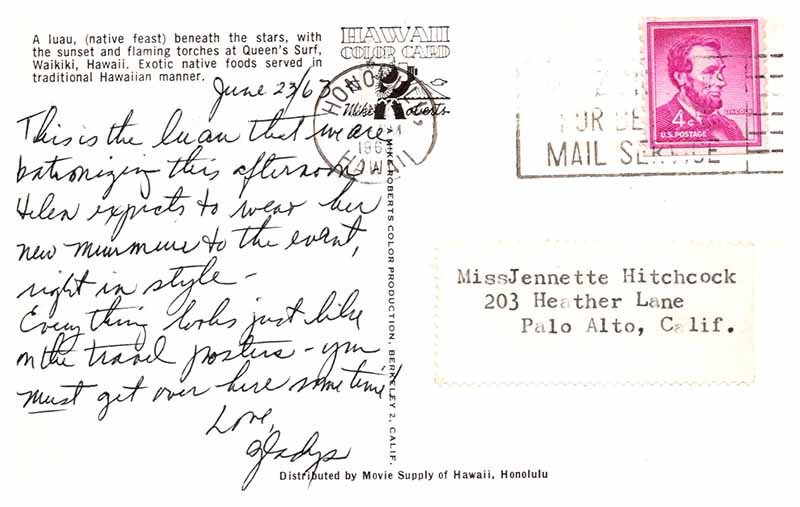 A luau, (native feast) beneath the stars, with
the sunset and flaming torches at Queen's Surf,
Waikiki, Hawaii. Exotic native foods served in
traditional Hawaiian manner.
HAWAII
COLOR CARD
Mike Roberts
June 23/63
This is the luau that we are
patronizing this afternoon
Helen expects to wear her
new muumuu to the event,
right in style –
Everything looks just like
on the travel posters – you
must get over here sometime!
Love,
Gladys
A MIKE ROBERTS COLOR PRODUCTION, BERKELEY 2, CALIF.
Distributed by Movie Supply of Hawaii, Honolulu
HONOLULU,
196
HAWAII
FOR
MAIL SERVICE
LINCOLN
4¢
U.S. POSTAGE
MissJennette Hitchcock
203 Heather Lane
Palo Alto, Calif.